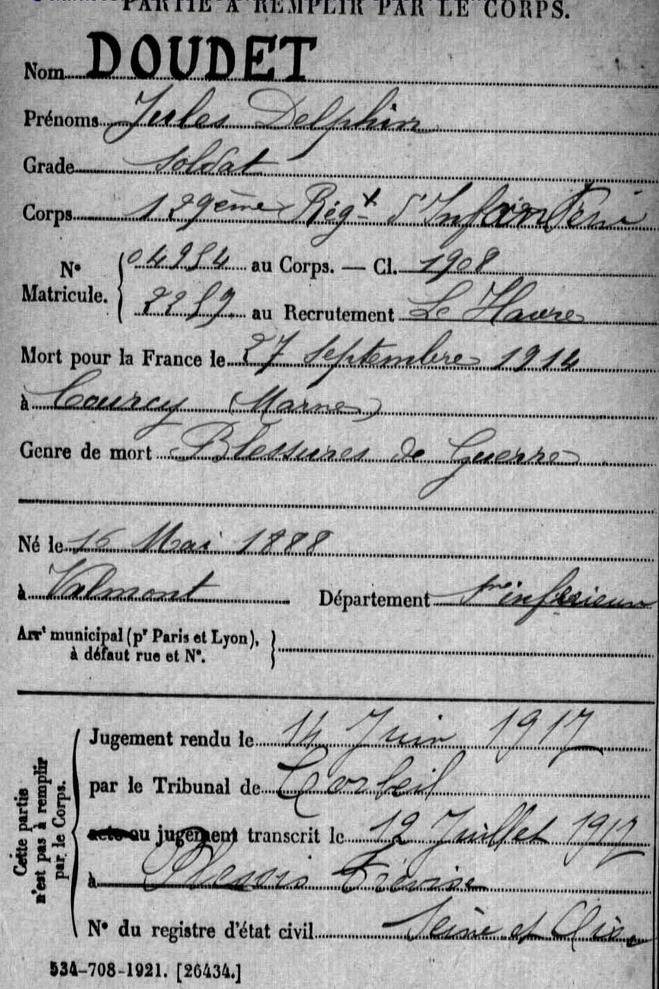 PARTIE À REMPLIR PAR LE CORPS.
Nom DOUDET
Prénoms Jules Delphin
Grade Soldat
Corps 129ème Régt d'Infanterie
N° Matricule. { 04954 au Corps. — Cl. 1908
2259 au Recrutement Le Havre
Mort pour la France le 27 Septembre 1914
à Courcy (Marne)
Genre de mort Blessures de Guerre
Né le 16 Mai 1888
à Valmont Département Sne inférieure
Arrt municipal (pr Paris et Lyon),
à défaut rue et N°. }
Cette partie
n'est pas à remplir
par le Corps.
Jugement rendu le 14 Juin 1917
par le Tribunal de Corbeil
acte ou jugement transcrit le 12 Juillet 1917
à Plessis Trévise
N° du registre d'état civil Seine et Oise
534-708-1921. [26434.]